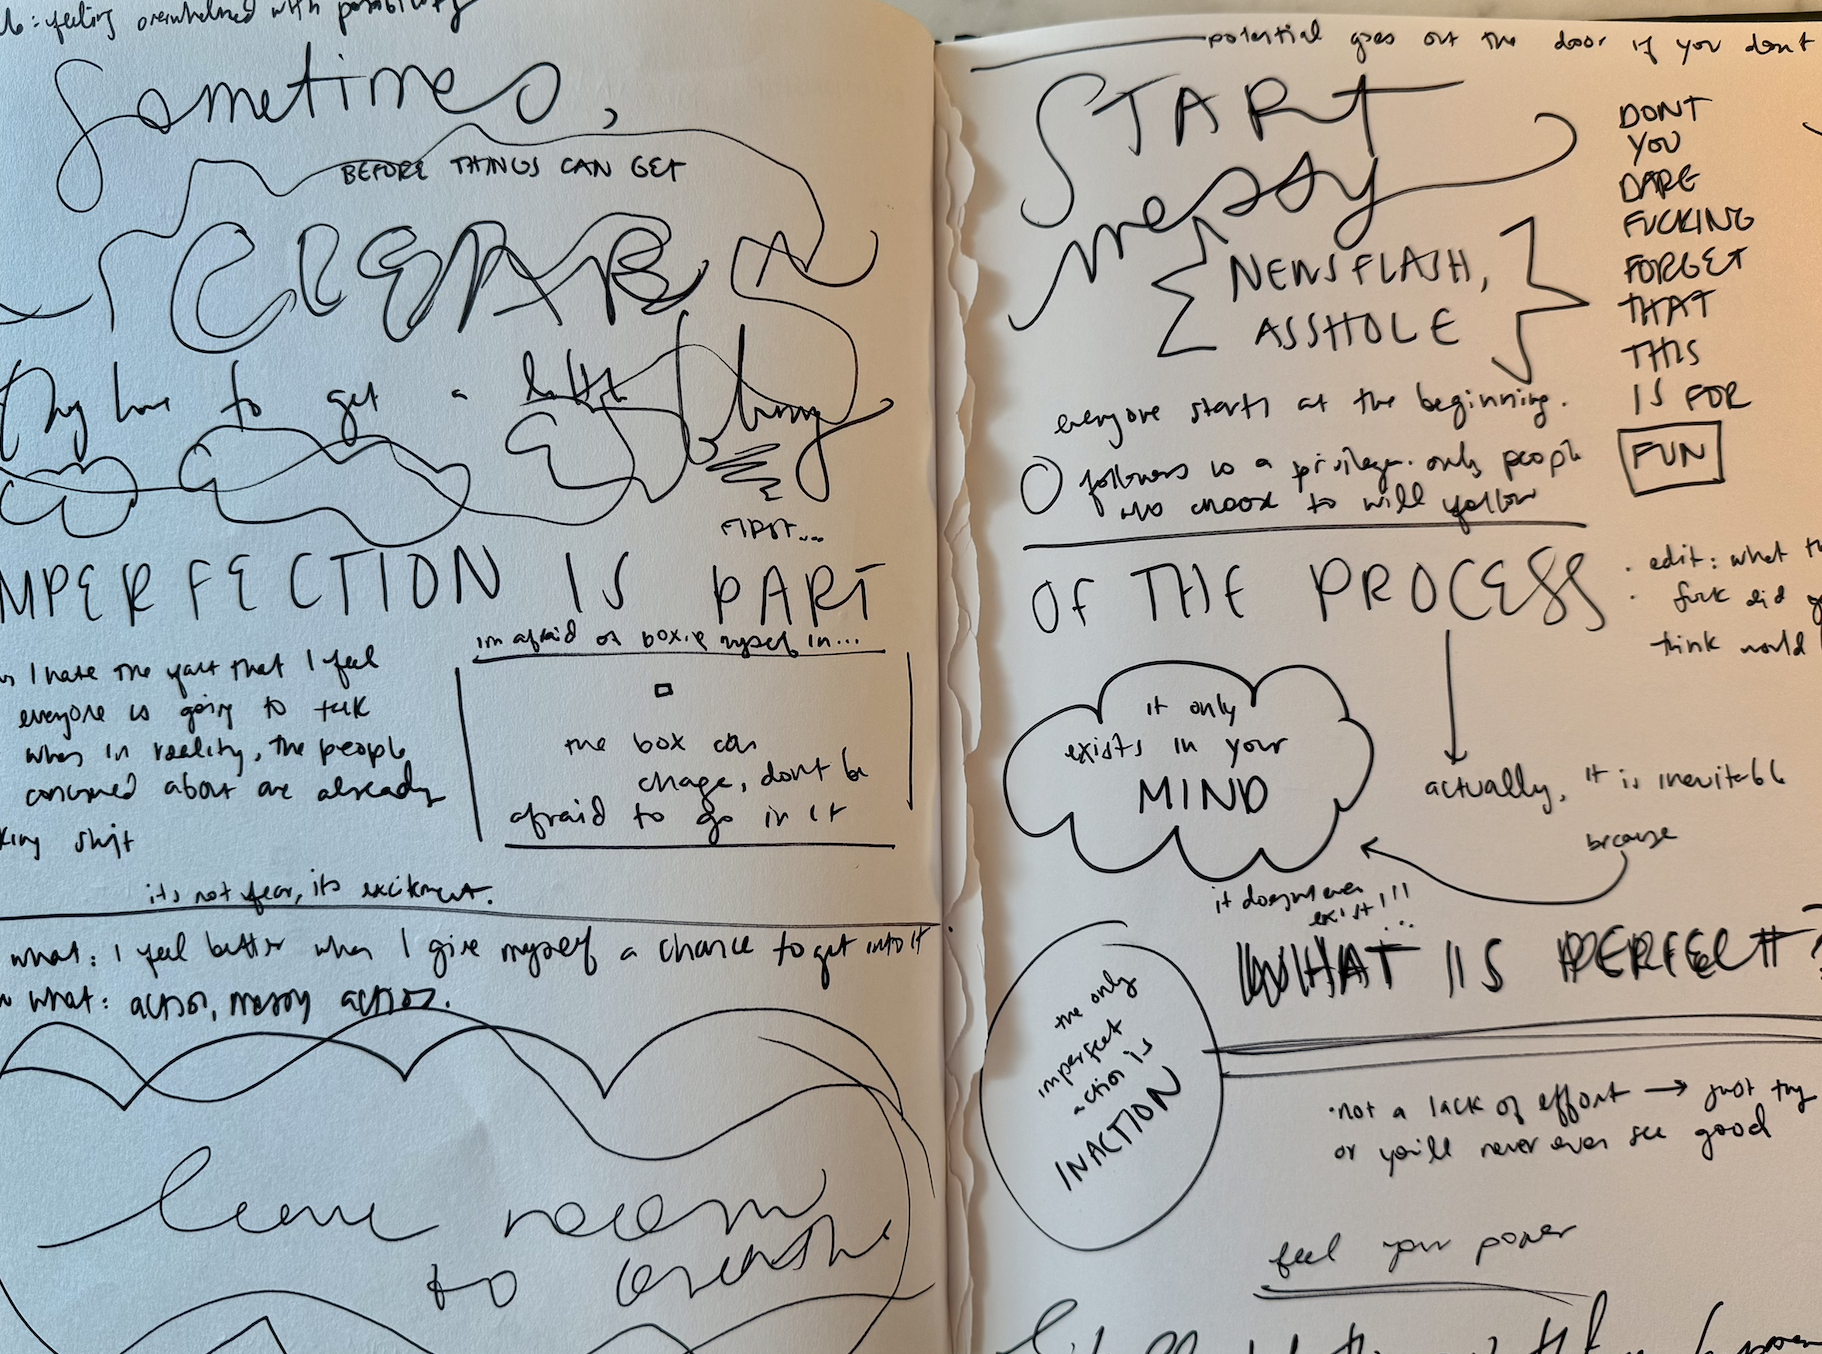 feeling overwhelmed with possibility
Sometimes,
BEFORE THINGS CAN GET
CLEAR
they have to get a little
blurry
FIRST...
IMPERFECTION IS PART
I hate the fact that I feel
everyone is going to talk
when in reality, the people
concerned about are already
shit
im afraid of boxing myself in...
the box can
change, dont be
afraid to go in it
its not fear, its excitment.
what: I feel better when I give myself a chance to get into it
what: action, messy action.
leave room
to breathe
potential goes out the door if you dont
START
messy
NEWSFLASH,
ASSHOLE
DONT
YOU
DARE
FUCKING
FORGET
THAT
THIS
IS FOR
FUN
everyone starts at the beginning.
followers is a privilege. only people
who choose to will follow
OF THE PROCESS
edit: what the
fuck did
think would
it only
exists in your
MIND
actually, it is inevitable
because
it doesnt even
exist!!!
WHAT IS PERFECT?
the only
imperfect
action is
INACTION
not a lack of effort → just try
or you'll never even see good
feel your power